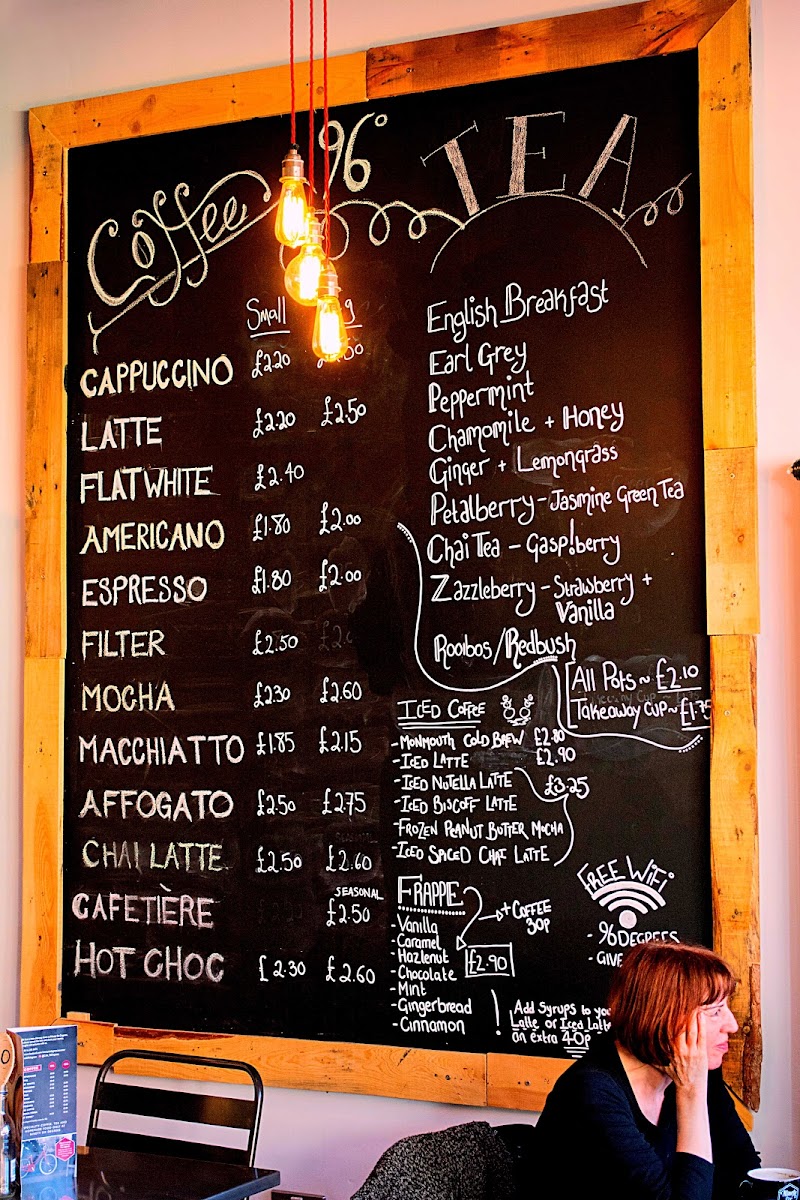 Coffee 96° TEA
Small
CAPPUCCINO £2.20
LATTE £2.20 £2.50
FLAT WHITE £2.40
AMERICANO £1.80 £2.00
ESPRESSO £1.80 £2.00
FILTER £2.50
MOCHA £2.30 £2.60
MACCHIATTO £1.85 £2.15
AFFOGATO £2.50 £2.75
CHAI LATTE £2.50 £2.60
SEASONAL
CAFETIÈRE £2.50
HOT CHOC £2.30 £2.60
English Breakfast
Earl Grey
Peppermint
Chamomile + Honey
Ginger + Lemongrass
Petalberry - Jasmine Green Tea
Chai Tea - Gasp!berry
Zazzleberry - Strawberry +
Vanilla
Rooibos/Redbush
All Pots ~ £2.10
Takeaway cup ~ £1.75
ICED COFFEE
- MONMOUTH COLD BREW £2.80
- ICED LATTE £2.90
- ICED NUTELLA LATTE £3.25
- ICED BISCOFF LATTE
- FROZEN PEANUT BUTTER MOCHA
- ICED SPICED CHAI LATTE
FRAPPE
+ COFFEE
30P
- Vanilla
- Caramel
- Hazlenut £2.90
- Chocolate
- Mint
- Gingerbread
- Cinnamon
! Add syrups to
Latte or Iced
an extra 40p
FREE WIFI
- 96DEGREES